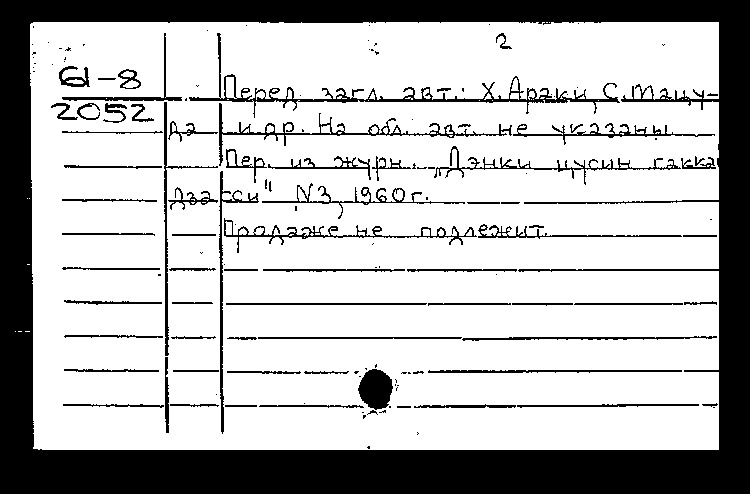 2
61-8
2052
Перед загл. авт.: Х. Араки, С. Мацу-
да и др. На обл. авт. не указаны
Пер. из журн. „Дэнки цусин гаккай
дзасси" N3, 1960 г.
Продаже не подлежит.